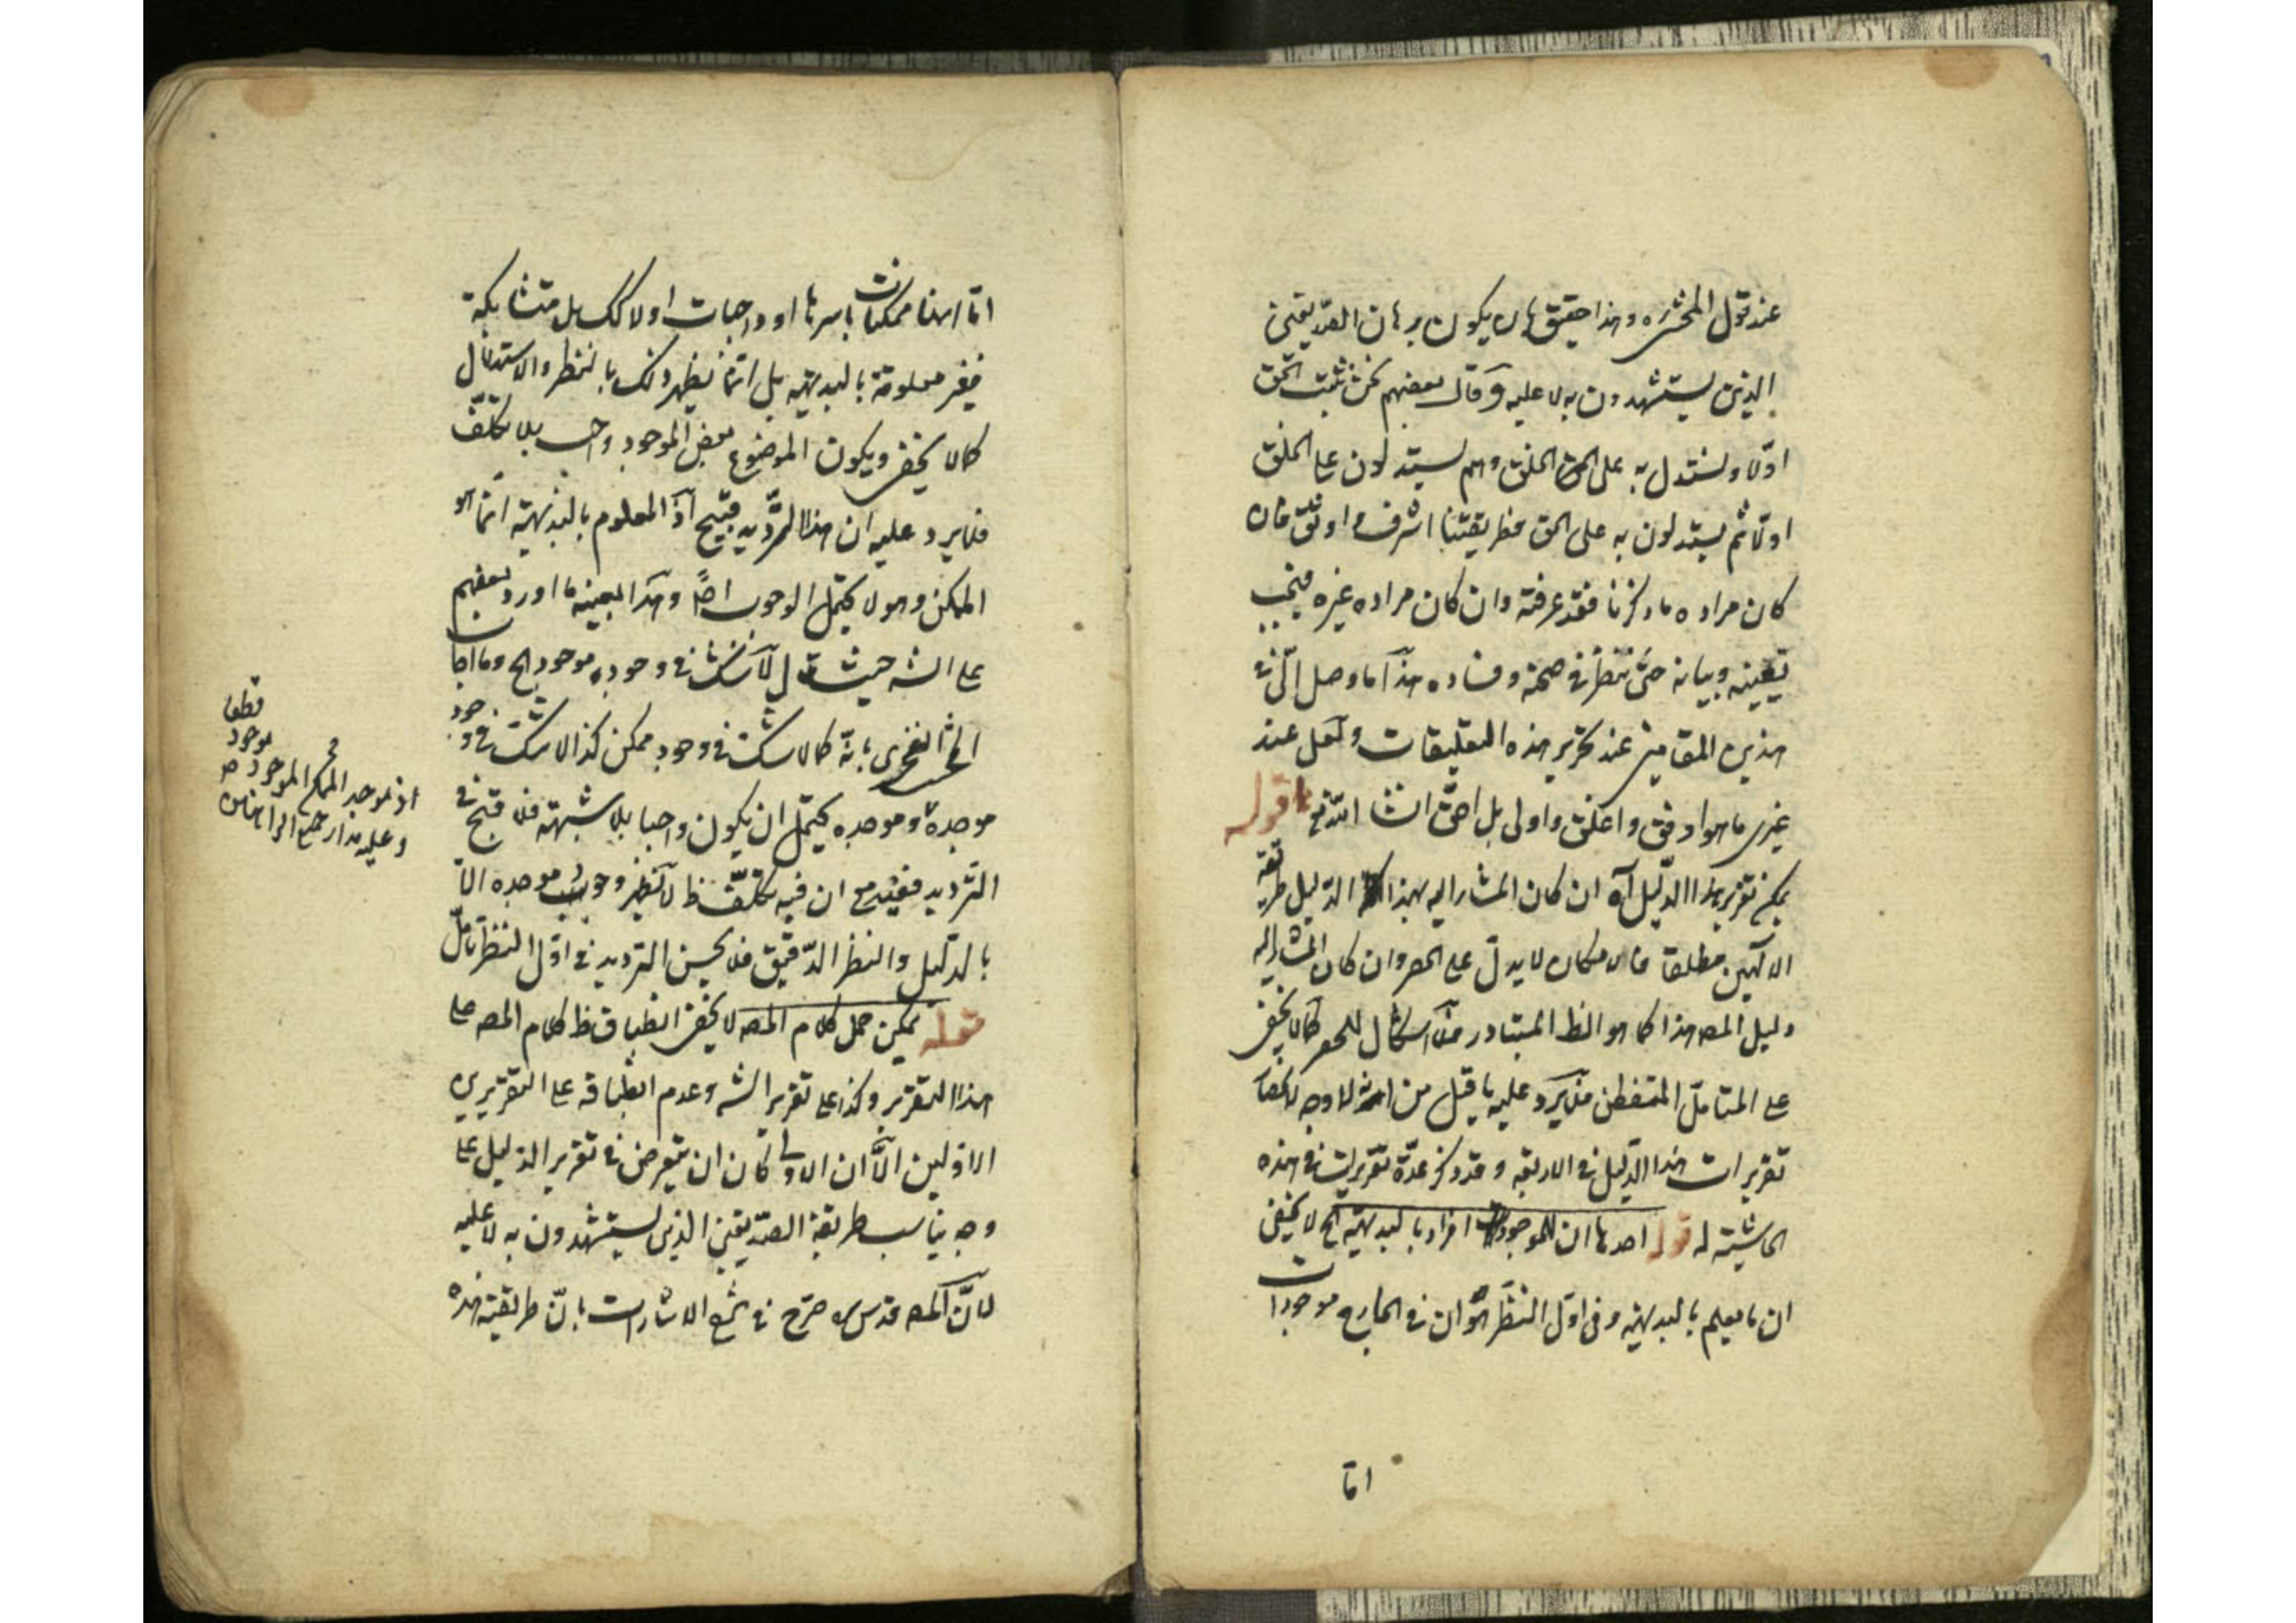 عند قول المحشى ره وهذا حقيق بان يكون برهان الصديقين
الذين يستشهدون به لا عليه وقال بعضهم نحن نثبت الحق
اولا ونستدل به على الخلق وهم يستدلون على الخلق
اولا ثم يستدلون به على الحق فطريقتنا اشرف واوثق فان
كان مراده ما ذكرنا فقد عرفته وان كان مراده غيره فيجب
تعيينه وبيانه حتى ننظر في صحته وفساده هذا ما وصل الى في
هذين المقامين عند تحرير هذه التعليقات ولعل عند
غيرى ما هو ادق واعلق واولى بل احق انشا الله تع قوله
يمكن تقرير هذا الدليل اه ان كان المشار اليه بهذا الدليل طريقة
الالهيين مطلقا فالامكان لا يدل على الحصر وان كان المشار اليه
دليل المصه هذا كما هو الظ المتبادر فلا اشكال للحصر كما لا يخفى
على المتامل المتفطن فلا يرد عليه ما قيل من انه لا وجه لانحصار
تقريرات هذا الدليل في الاربعة وقد ذكر عدة تقريرات في هذه
الحاشية له قوله احدها ان للموجود افراد بالبديهة الخ لا يخفى
ان ما يعلم بالبديهة وفى اول النظر هو ان في الخارج موجودات
اما
اما انها ممكنات باسرها او واجبات اولا كك بل متشابكة
فغير معلومة بالبديهة بل انما يظهر ذلك بالنظر والاستدلال
كما لا يخفى ويكون الموضوع بعض الموجود واجب بلا تكلف
فلا يرد عليه ان هذا الترديد قبيح اذ المعلوم بالبديهة انما هو
الممكن وهو لا يحتمل الوجوب اصلا وهذا بعينه ما اورد بعضهم
على الشه حيث قال لا شك في وجود موجود الخ وما اجاب
المحشى الفخرى بانه كما لا شك في وجود ممكن كذا لا شك في وجود
موجده وموجده يحتمل ان يكون واجبا بلا شبهة فلا قبح في
الترديد ففيه مع ان فيه تكلف ظ لا يظهر وجوب موجده الا
بالدليل والنظر الدقيق فلا يحسن الترديد في اول النظر تامل
قوله يمكن حمل كلام المصه لا يخفى انطباق ظ كلام المصه على
هذا التقرير وكذا على تقرير الشه وعدم انطباقه على التقريرين
الاولين الا ان الاولى كان ان يتعرض في تقرير الدليل على
وجه يناسب طريقة الصديقين الذين يستشهدون به لا عليه
لان المصه قدس سره صرح في شرح الاشارات بان طريقته هذه
قطعا
موجود
اذ موجد الممكن الموجود